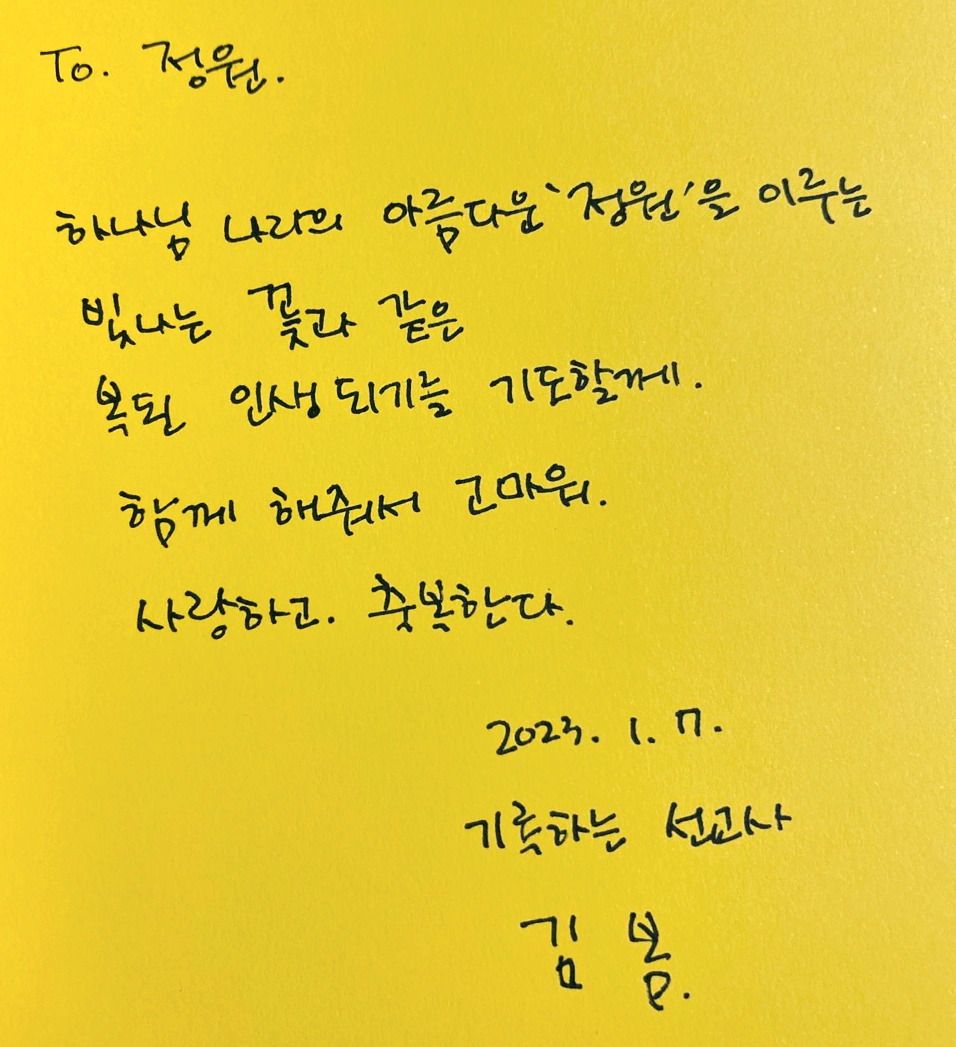 To. 정원.
하나님 나라의 아름다운 '정원'을 이루는
빛나는 꽃과 같은
복된 인생 되기를 기도할께.
함께 해줘서 고마워.
사랑하고. 축복한다.
2023. 1. 7.
기록하는 선교사
김 봄.